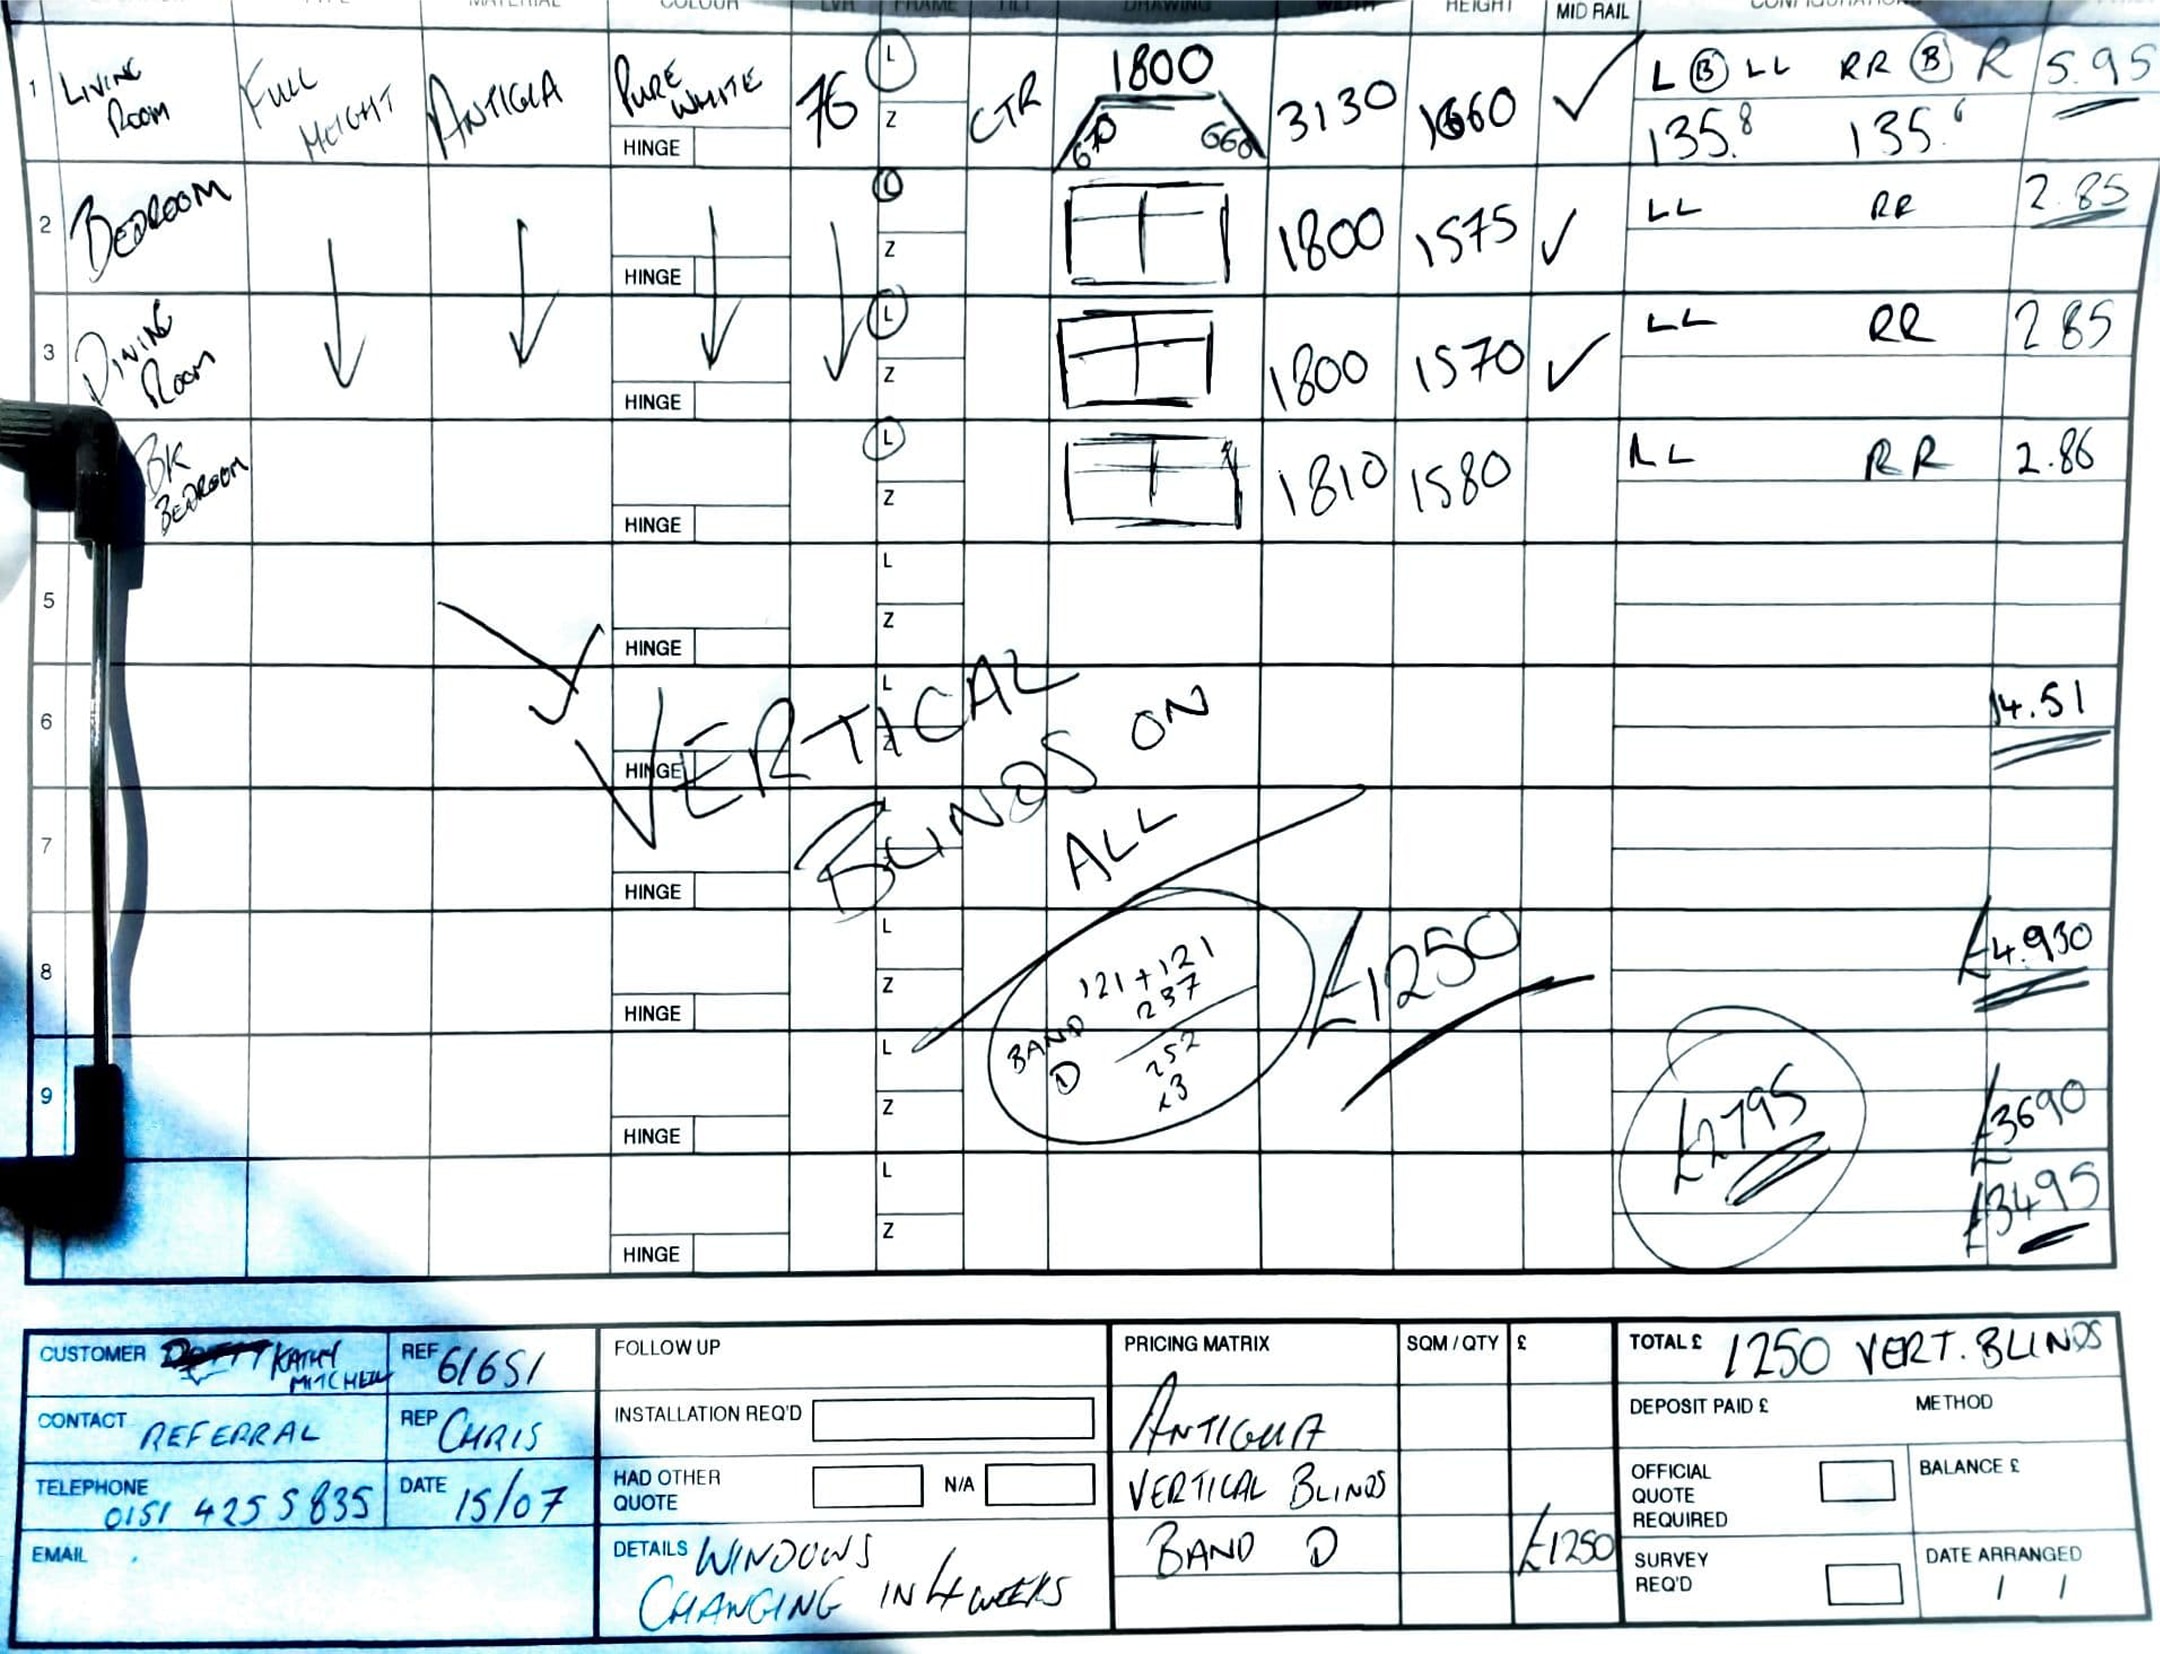 HEIGHT MID RAIL
1 LIVING ROOM FULL HEIGHT ANTIGUA PURE WHITE HINGE 76 L Z CTR 1800 670 660 3130 1660 ✓ L B LL RR B R 5.95
135.8 135.6
2 BEDROOM HINGE Z 1800 1575 ✓ LL RR 2.85
3 DINING ROOM HINGE L Z 1800 1570 ✓ LL RR 2.85
BK BEDROOM HINGE L Z 1810 1580 LL RR 2.86
5 HINGE L Z
6 HINGE L Z 14.51
VERTICAL
BLINDS ON
ALL
7 HINGE L
8 HINGE L Z £1250 £4.930
121 + 121
237
BAND D
252
x3
9 HINGE L Z £2795 £3690
HINGE L Z £3495
CUSTOMER KATHY MITCHELL REF 61651
CONTACT REFERRAL REP CHRIS
TELEPHONE 0151 425 5835 DATE 15/07
EMAIL
FOLLOW UP
INSTALLATION REQ'D
HAD OTHER QUOTE N/A
DETAILS WINDOWS
CHANGING IN 4 WEEKS
PRICING MATRIX SQM / QTY £
ANTIGUA
VERTICAL BLINDS
BAND D £1250
TOTAL £ 1250 VERT. BLINDS
DEPOSIT PAID £ METHOD
OFFICIAL QUOTE REQUIRED BALANCE £
SURVEY REQ'D DATE ARRANGED
/ /